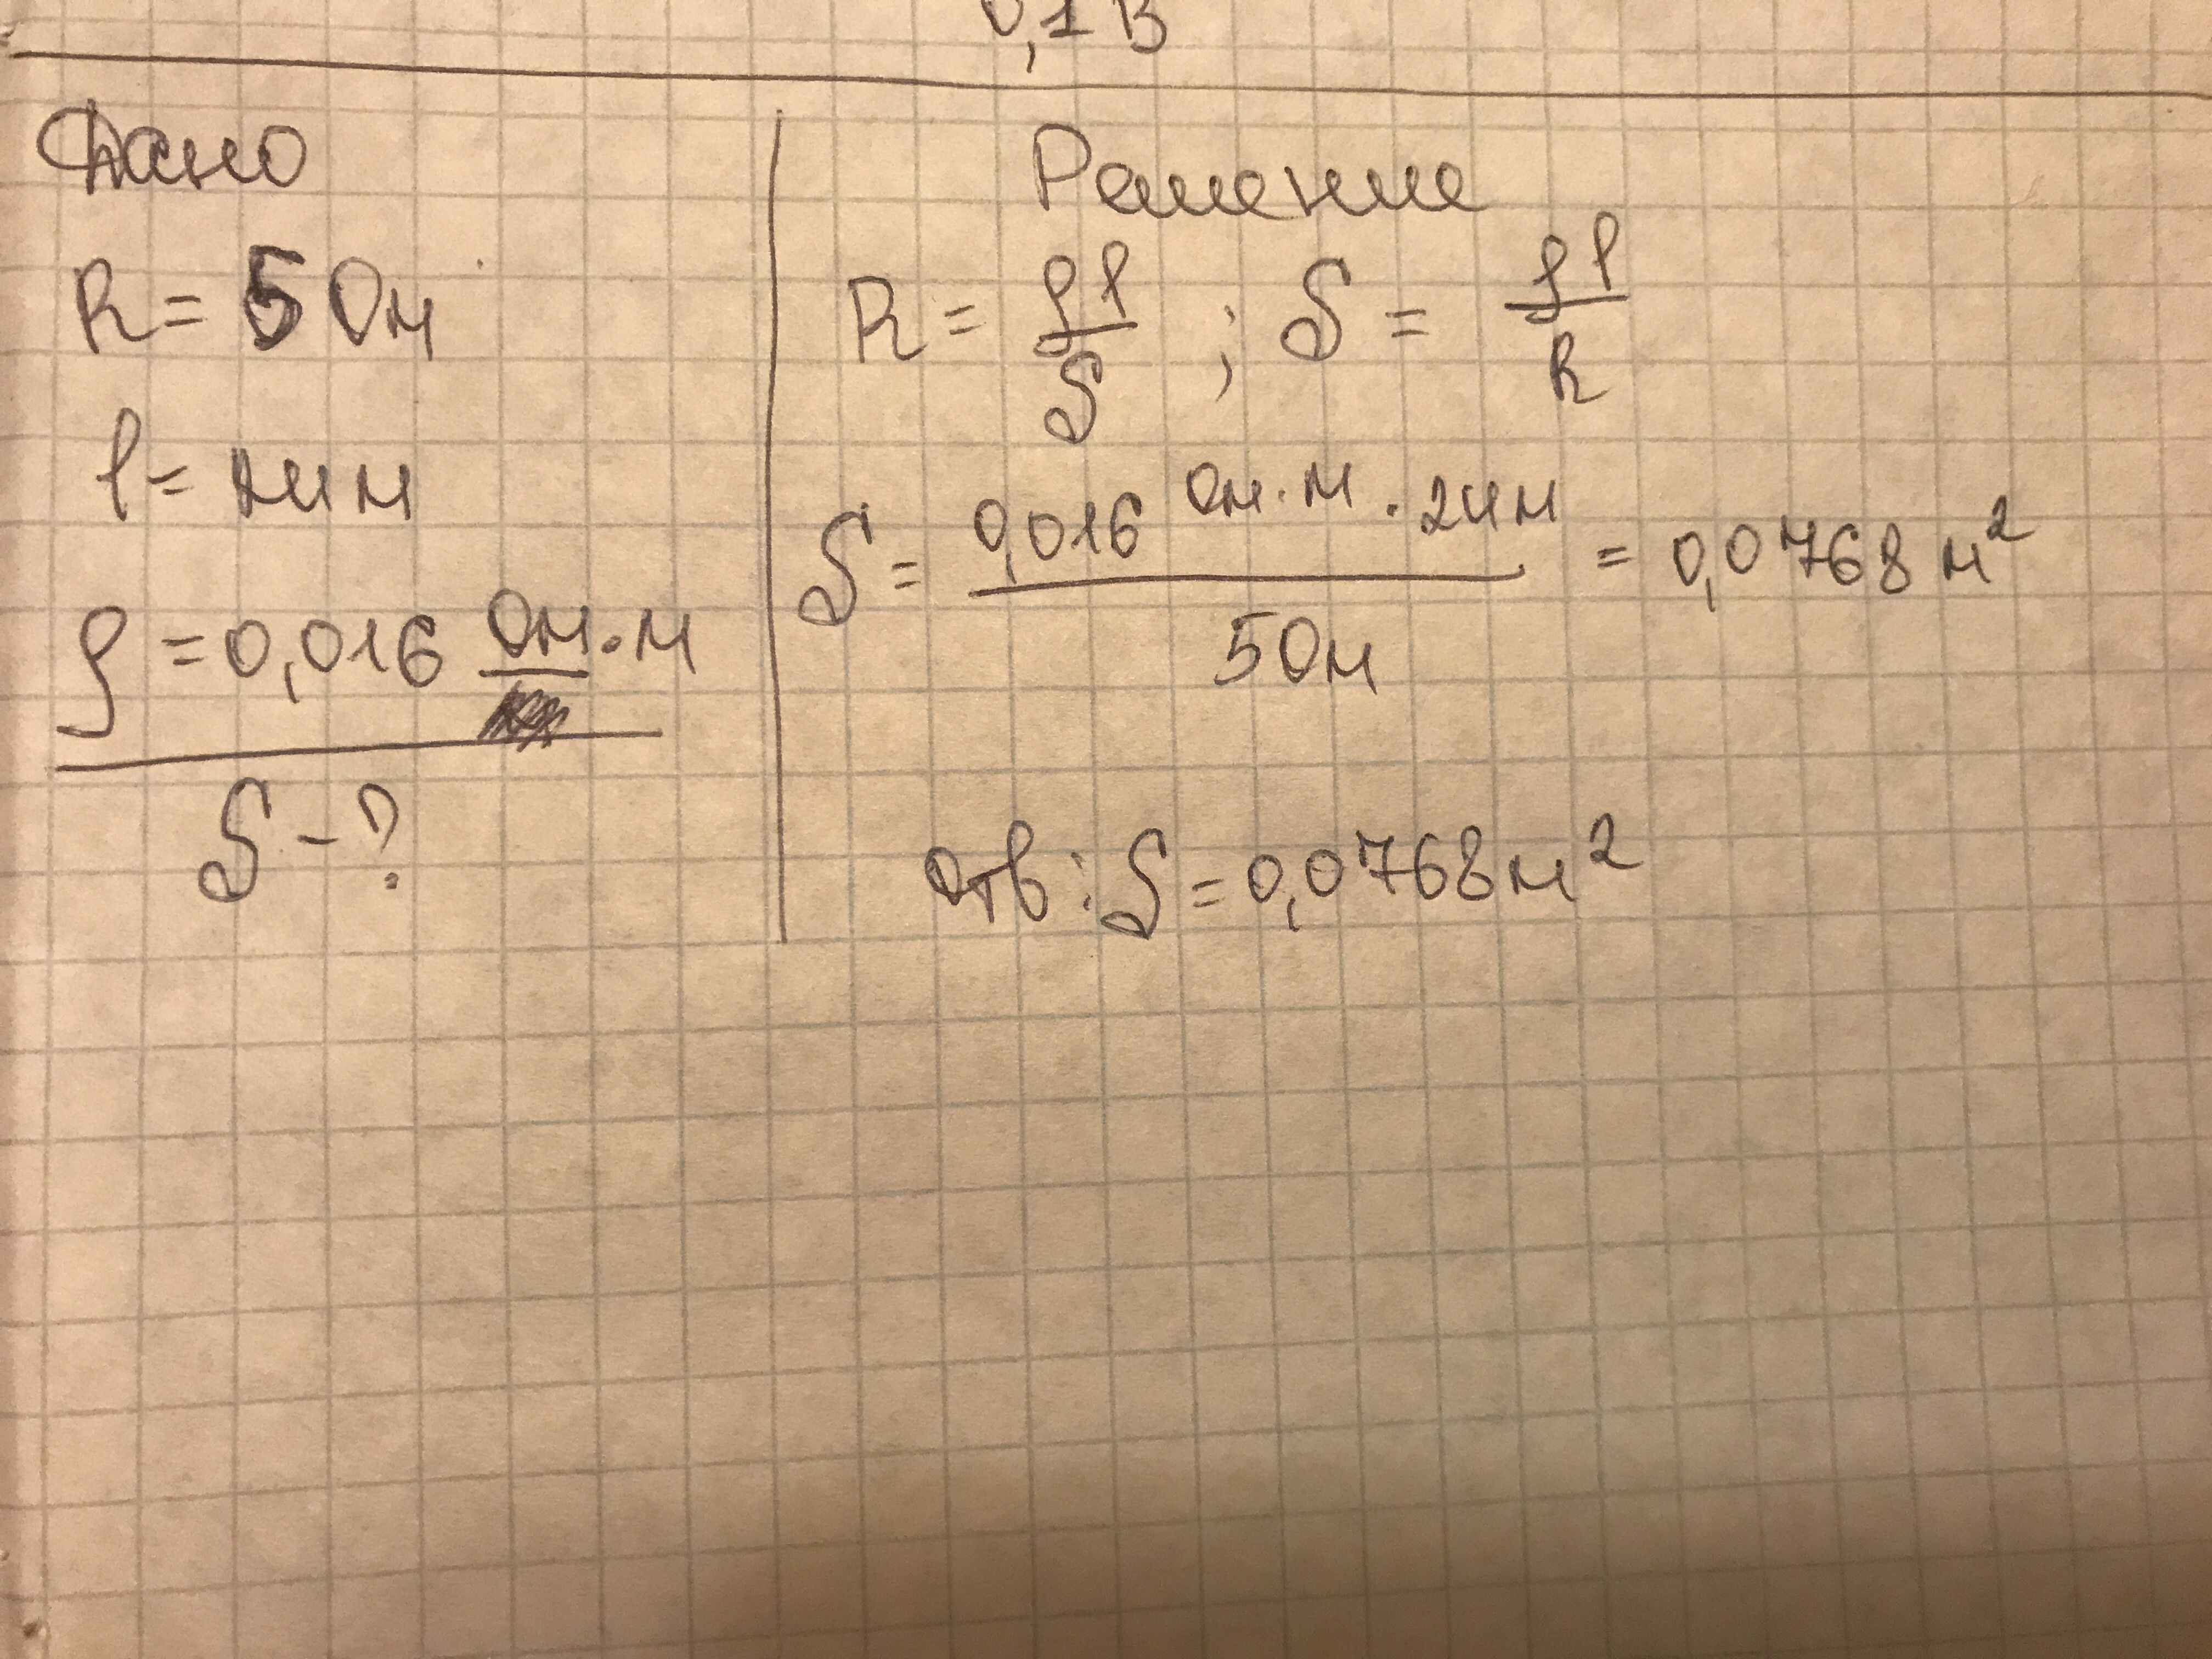 0,1 В
Дано
R = 5 Ом
l = м
ρ = 0,016 Ом · м
S - ?
Решение
R = ρl/S ; S = ρl/R
S = 0,016 Ом·м · 24м / 5 Ом = 0,0768 м²
Отв : S = 0,0768 м²